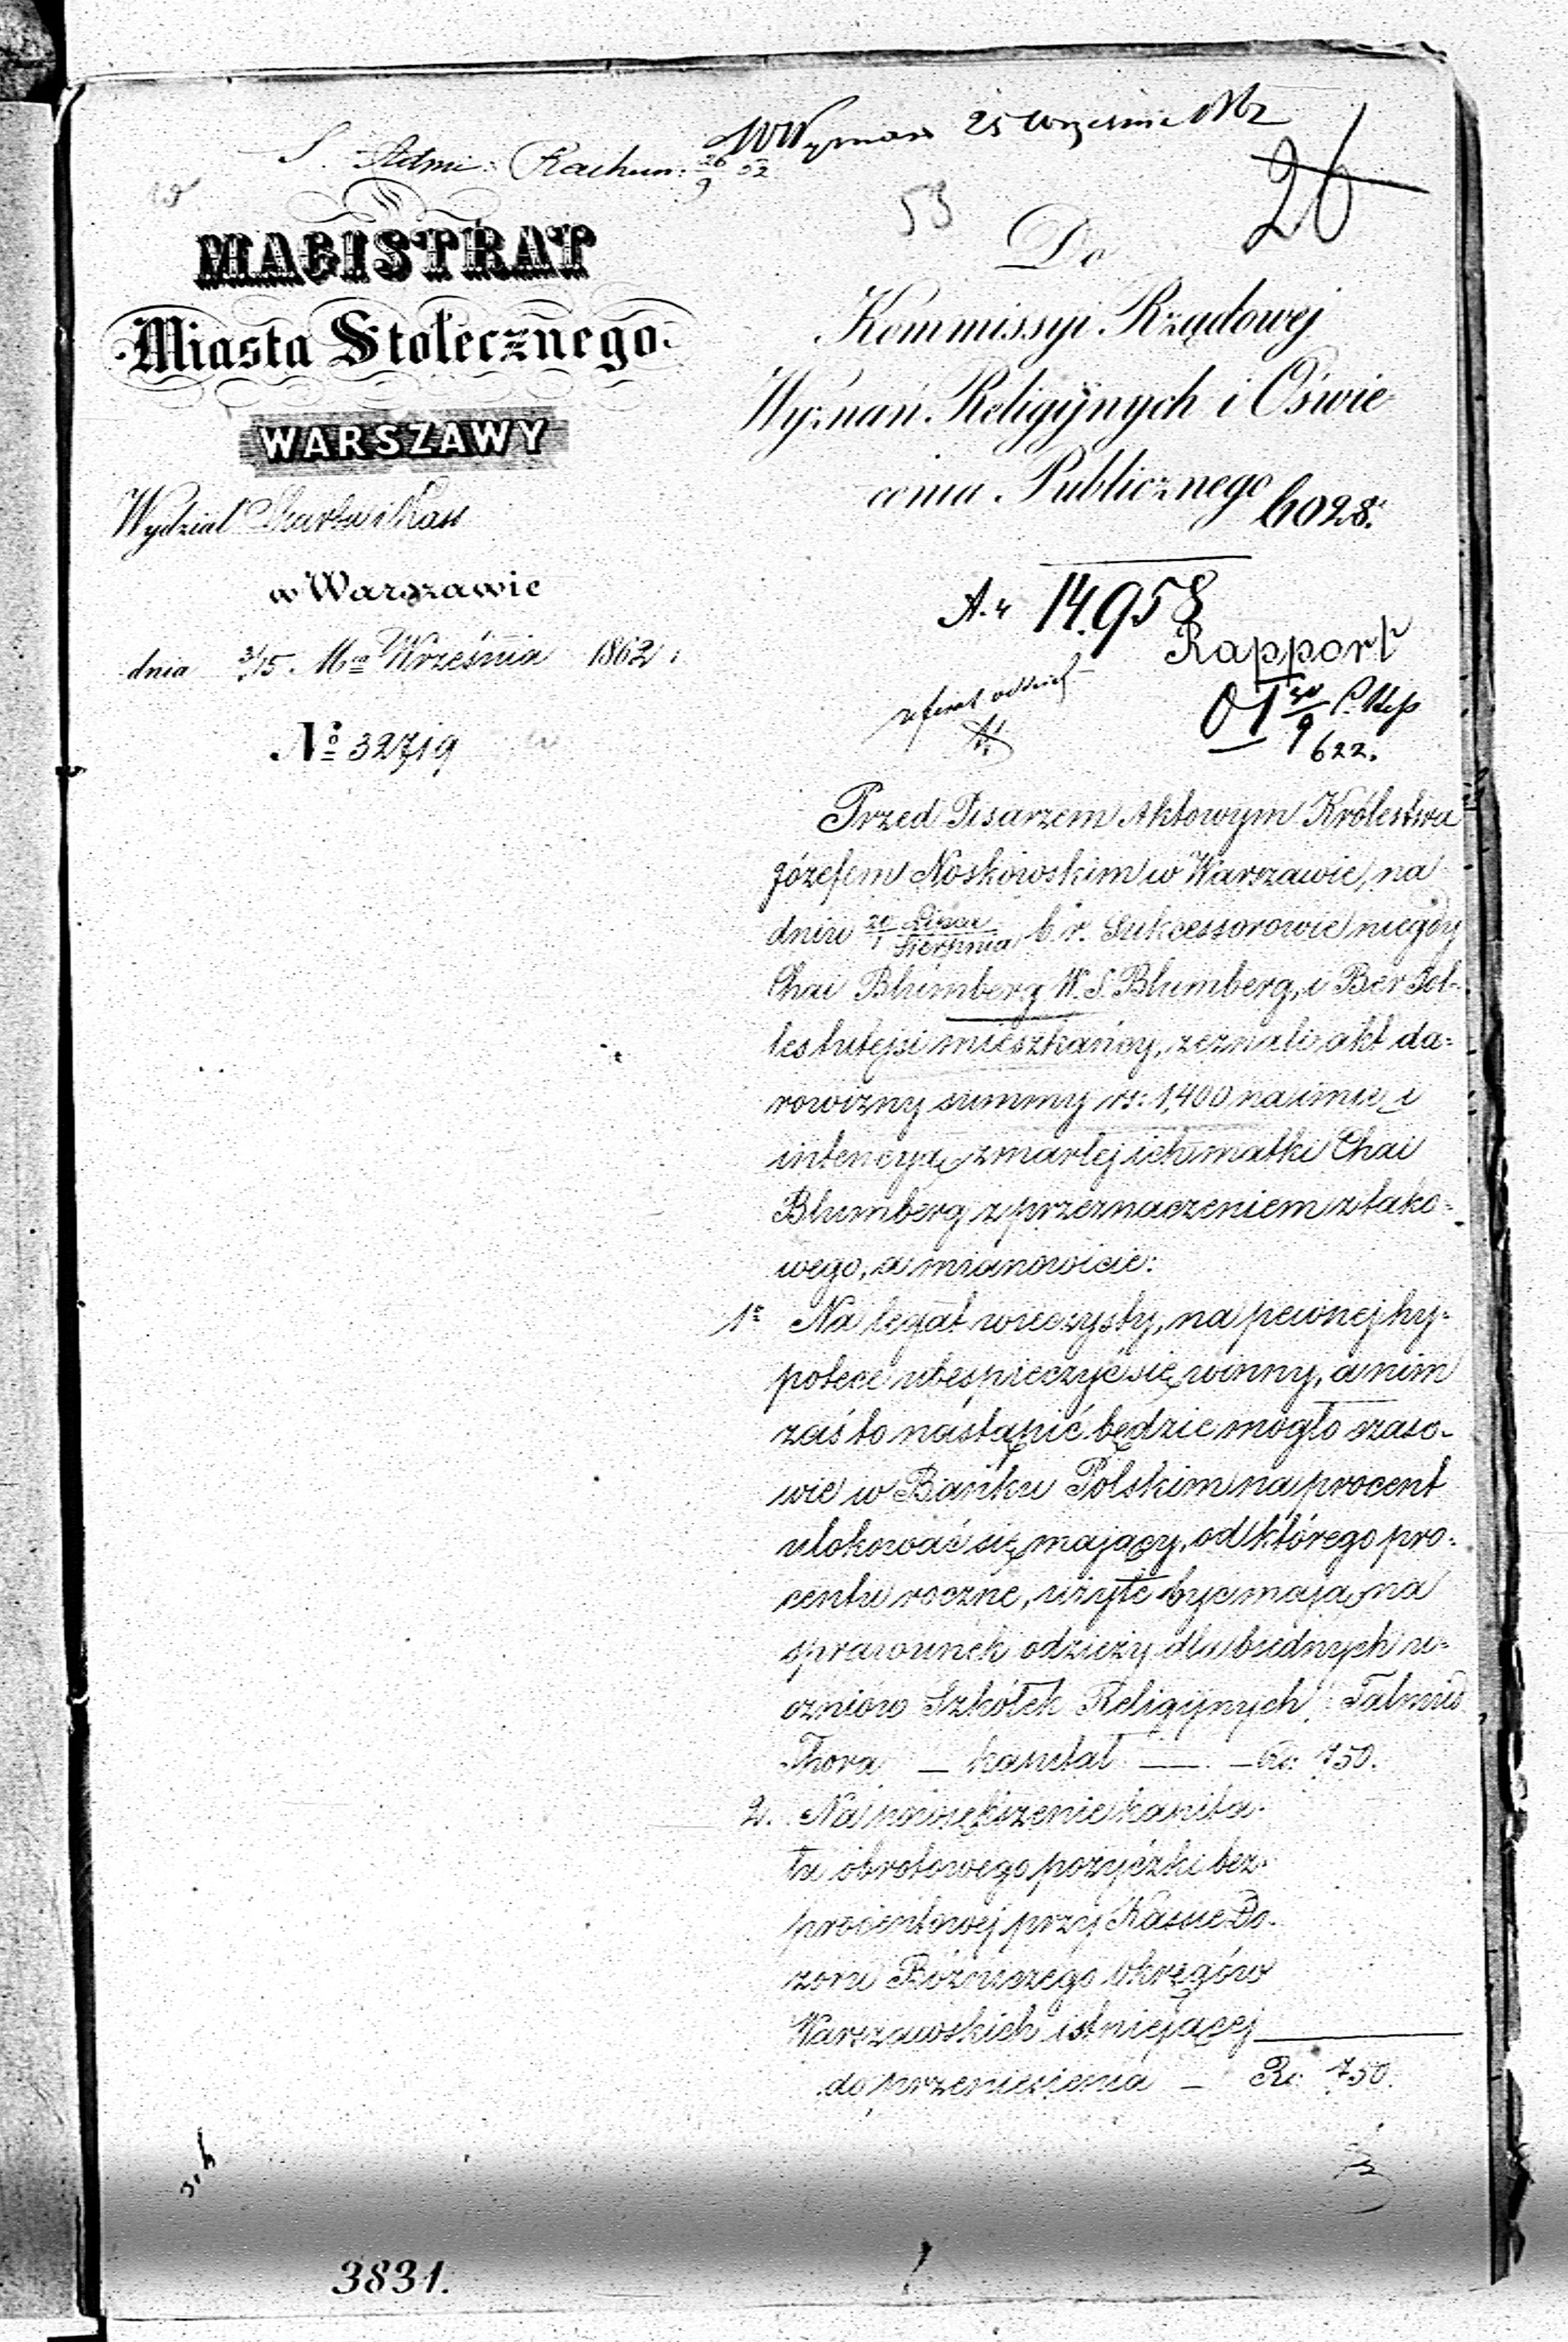 S. Admi: Rachun: 26/9 62
WWyznań 25 Września 1862
53
26
MAGISTRAT
Miasta Stołecznego
WARSZAWY
Wydział Skarbu i Kass
w Warszawie
dnia 3/15 Mca Września 1862 r.
No 32719
Do
Kommissyi Rządowej
Wyznań Religijnych i Oświe
cenia Publicznego
6028.
14.958
Rapport
referat oddzieł
622.
Przed Pisarzem Aktowym Królestwa
Józefem Noskowskim w Warszawie, na
dniu 20 Lipca / 1 Sierpnia b. r. Sukcessorowie niegdy
Chai Blumberg W. S. Blumberg, i Ber Sol-
les tutejsi mieszkańcy, zeznali akt da-
rowizny summy rs: 1,400 na imie i
intencyą zmarłej ich matki Chai
Blumberg z przeznaczeniem z tako-
wego, a mianowicie:
1e Na legat wieczysty, na pewnej hy-
potece ubespieczyć się winny, a nim
zaś to nastąpić będzie mogło czaso-
wie w Banku Polskim na procent
ulokować się mający, od którego pro-
centu roczne, użyte być mają na
sprawunek odzieży dla biednych u-
czniów Szkółek Religijnych Talmud
Thora — kapitał — Rs: 750.
2. Na powiększenie kapita-
łu obrotowego pożyczki bez-
procentowej przy Kassie Do-
zoru Bóżniczego Okręgów
Warszawskich istniejącej
do przeniesienia — Rs: 750.
3831.